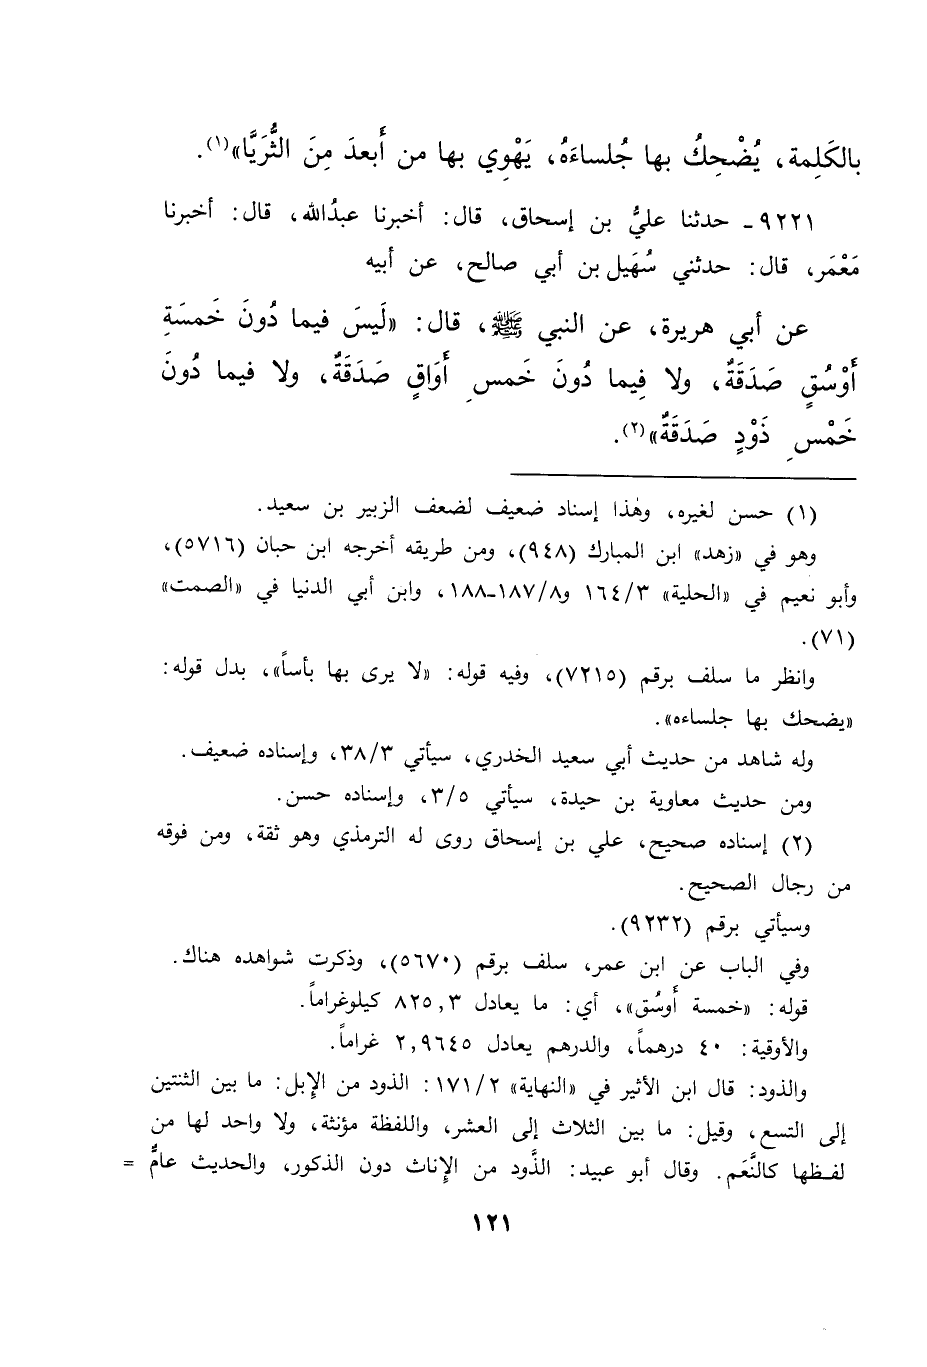 بالكَلِمة، يُضْحِكُ بها جُلساءَهُ، يَهْوِي بها من أَبعدَ مِنَ الثُّرَيَّا»(١).
٩٢٢١ـ حدثنا عليُّ بن إسحاق، قال: أخبرنا عبدُالله، قال: أخبرنا
مَعْمَر، قال: حدثني سُهَيل بن أبي صالح، عن أبيه
عن أبي هريرة، عن النبي ﷺ، قال: «لَيسَ فيما دُونَ خَمسَةِ
أَوْسُقٍ صَدَقَةٌ، ولا فِيما دُونَ خَمسِ أَوَاقٍ صَدَقَةٌ، ولا فيما دُونَ
خَمْسِ ذَوْدٍ صَدَقَةٌ»(٢).
(١) حسن لغيره، وهٰذا إسناد ضعيف لضعف الزبير بن سعيد.
وهو في «زهد» ابن المبارك (٩٤٨)، ومن طريقه أخرجه ابن حبان (٥٧١٦)،
وأبو نعيم في «الحلية» ١٦٤/٣ و١٨٧/٨-١٨٨، وابن أبي الدنيا في «الصمت»
(٧١).
وانظر ما سلف برقم (٧٢١٥)، وفيه قوله: «لا يرى بها بأساً»، بدل قوله:
«يضحك بها جلساءه».
وله شاهد من حديث أبي سعيد الخدري، سيأتي ٣٨/٣، وإسناده ضعيف.
ومن حديث معاوية بن حيدة، سيأتي ٣/٥، وإسناده حسن.
(٢) إسناده صحيح، علي بن إسحاق روى له الترمذي وهو ثقة، ومن فوقه
من رجال الصحيح.
وسيأتي برقم (٩٢٣٢).
وفي الباب عن ابن عمر، سلف برقم (٥٦٧٠)، وذكرت شواهده هناك.
قوله: «خمسة أَوسُق»، أي: ما يعادل ٨٢٥,٣ كيلوغراماً.
والأوقية: ٤٠ درهماً، والدرهم يعادل ٢,٩٦٤٥ غراماً.
والذود: قال ابن الأثير في «النهاية» ١٧١/٢: الذود من الإبل: ما بين الثنتين
إلى التسع، وقيل: ما بين الثلاث إلى العشر، واللفظة مؤنثة، ولا واحد لها من
لفظها كالنَّعَم. وقال أبو عبيد: الذَّود من الإناث دون الذكور، والحديث عامٌّ =
١٢١